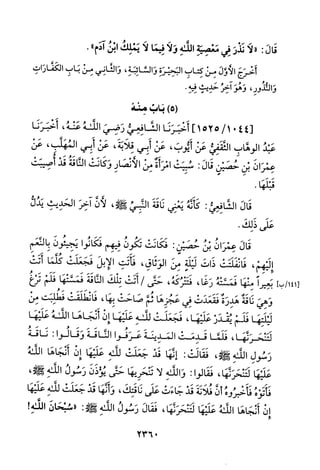 قَالَ: «لَا نَذْرَ فِي مَعْصِيَةِ اللَّهِ وَلَا فِيمَا لَا يَمْلِكُ ابْنُ آدَمَ».
أَخْرَجَ الْأَوَّلَ مِنْ كِتَابِ الْبَحِيْرَةِ وَالسَّائِبَةِ، وَالثَّانِي مِنْ بَابِ الْكَفَّارَاتِ
وَالنُّذُورِ، وَهُوَ آخِرُ حَدِيثٍ فِيهِ.
(٥) بَابٌ مِنْهُ
[١٥٢٥/١٠٤٤] أَخْبَرَنَا الشَّافِعِيُّ رَضِيَ اللَّهُ عَنْهُ، أَخْبَرَنَا
عَبْدُ الْوَهَّابِ الثَّقَفِيُّ عَنْ أَيُّوبَ، عَنْ أَبِي قِلَابَةَ، عَنْ أَبِي الْمُهَلَّبِ، عَنْ
عِمْرَانَ بْنِ حُصَيْنٍ قَالَ: سُبِيَتْ امْرَأَةٌ مِنَ الْأَنْصَارِ وَكَانَتْ النَّاقَةُ قَدْ أُصِيبَتْ
قَبْلَهَا.
قَالَ الشَّافِعِيُّ: كَأَنَّهُ يَعْنِي نَاقَةَ النَّبِيِّ ﷺ، لِأَنَّ آخِرَ الْحَدِيثِ يَدُلُّ
عَلَى ذَلِكَ.
قَالَ عِمْرَانُ بْنُ حُصَيْنٍ: فَكَانَتْ تَكُونُ فِيهِمْ فَكَانُوا يَجِيئُونَ بِالنَّعَمِ
إِلَيْهِمْ، فَانْفَلَتَتْ ذَاتَ لَيْلَةٍ مِنَ الْوَثَاقِ، فَأَتَتِ الْإِبِلَ فَجَعَلَتْ كُلَّمَا أَتَتْ
بَعِيراً مِنْهَا فَمَسَّتْهُ رَغَا، فَتَتْرُكُهُ، حَتَّى / أَتَتْ تِلْكَ النَّاقَةَ فَمَسَّتْهَا فَلَمْ تَرْغُ [١٤٤/ب]
وَهِيَ نَاقَةٌ هَدِرَةٌ فَقَعَدَتْ فِي عَجُزِهَا ثُمَّ صَاحَتْ بِهَا، فَانْطَلَقَتْ فَطُلِبَتْ مِنْ
لَيْلَتِهَا فَلَمْ يُقْدَرْ عَلَيْهَا، فَجَعَلَتْ لِلَّهِ عَلَيْهَا إِنْ أَنْجَاهَا اللَّهُ عَلَيْهَا
لَتَنْحَرَنَّهَا، فَلَمَّا قَدِمَتْ الْمَدِينَةَ عَرَفُوا النَّاقَةَ وَقَالُوا: نَاقَةُ
رَسُولِ اللَّهِ ﷺ، فَقَالَتْ: إِنَّهَا قَدْ جَعَلَتْ لِلَّهِ عَلَيْهَا إِنْ أَنْجَاهَا اللَّهُ
عَلَيْهَا لَتَنْحَرَنَّهَا، فَقَالُوا: وَاللَّهِ لَا تَنْحَرِيهَا حَتَّى يُؤْذَنَ رَسُولُ اللَّهِ ﷺ،
فَأَتَوْهُ فَأَخْبَرُوهُ أَنَّ فُلَانَةَ قَدْ جَاءَتْ عَلَى نَاقَتِكَ، وَأَنَّهَا قَدْ جَعَلَتْ لِلَّهِ عَلَيْهَا
إِنْ أَنْجَاهَا اللَّهُ عَلَيْهَا لَتَنْحَرَنَّهَا، فَقَالَ رَسُولُ اللَّهِ ﷺ: «سُبْحَانَ اللَّهِ!
٢٣٦٠